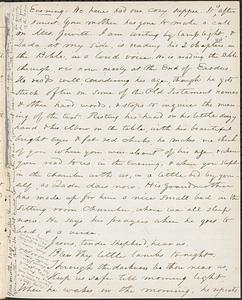 Evening. We have had our cosy supper & after
sunset your mother has gone to make a call
on Mrs. Jewett. I am writing by lamplight, &
at my side, is reading his 2 chapters in
the Bible, as I used to do. He is reading the Bible
through & is now nearly at the End of Exodus.
He reads well considering his age, though he gets
stuck often on some of the Old Testament names
& other hard words, & stops to inquire the mean-
ing of the text. Resting his head on his little dimpy
hand & his elbow on the table, with his beautiful
bright eyes & fat red cheek, he makes me think
of you when you were about of his age, & when
you used to do so in the evening, & when you slept
in the chamber with us, in a little bed by your
self, as does now. His Grandmother
has made up for him a nice small bed in the
sitting room chamber, where we all sleep
now. He says his prayers when he goes to
bed & a verse
Jesus, tender Shepherd, hear us
Bless thy little lambs to-night,
Through the darkness be thou near us
Keep us safe till morning light.
When he wakes in the morning, he repeats